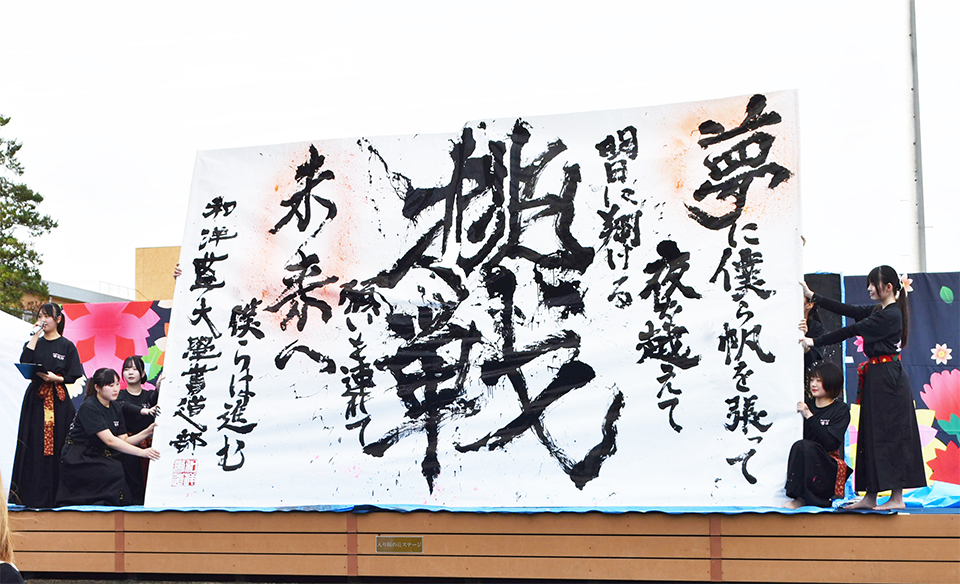 夢に僕ら帆を張って
夜を越えて
明日に翔ける
挑戦
願いを連れて
未来へ
僕らは進む
和洋藍大學書道部